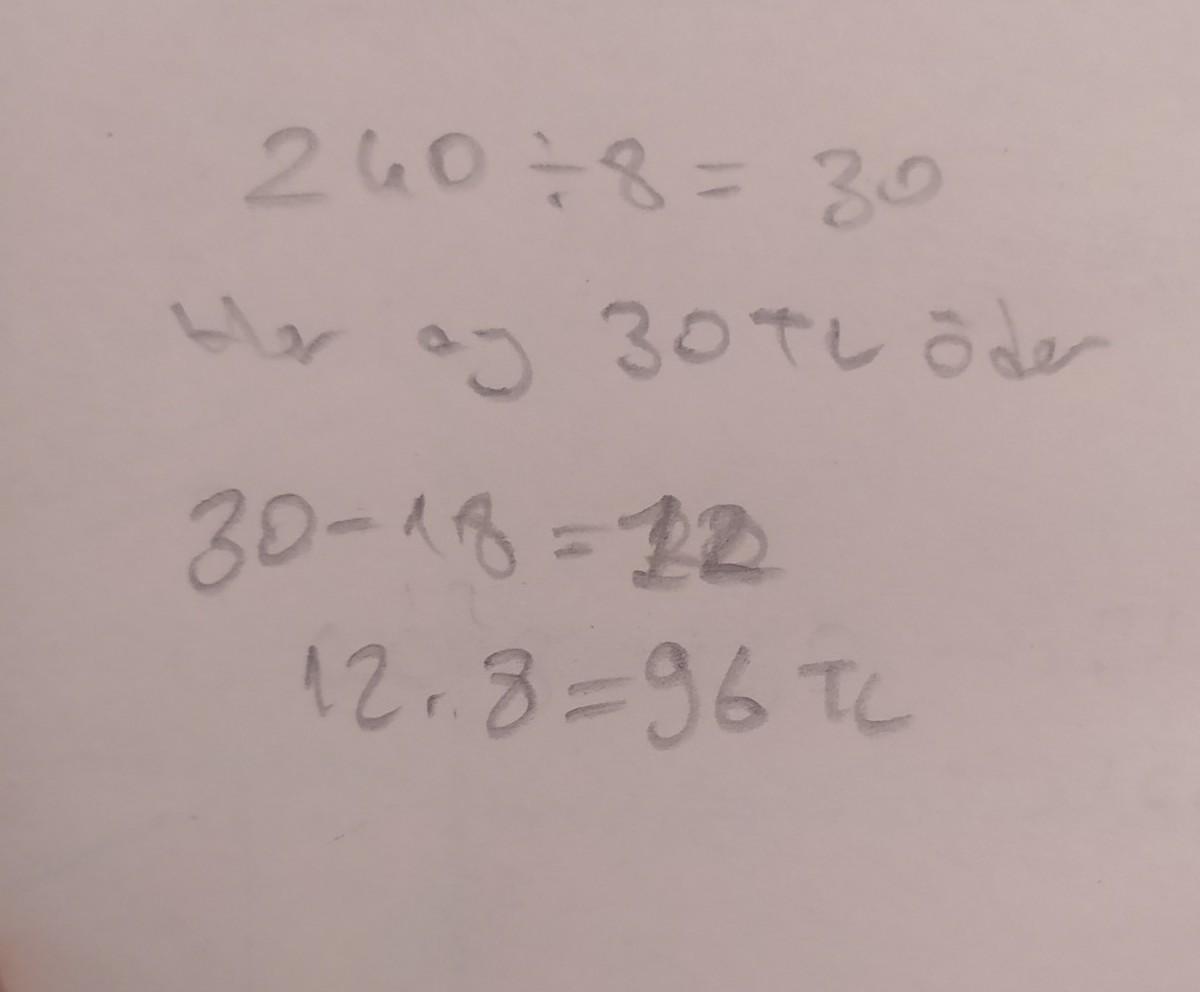 240 ÷ 8 = 30
Her ay 30 TL öder
30 - 18 = 12
12 . 8 = 96 TL